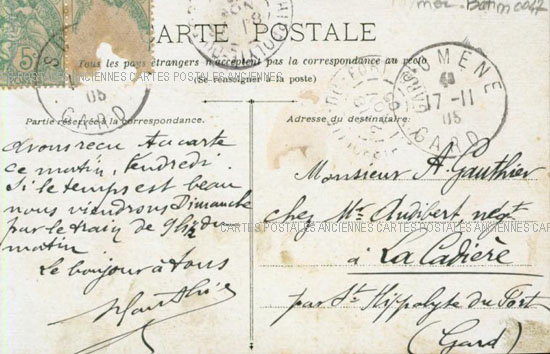 CARTE POSTALE
Tous les pays étrangers n'acceptent pas la correspondance au recto
(Se renseigner à la poste)
CARTES POSTALES ANCIENNES CARTES POSTALES ANCIENNES CARTES
Partie réservée à la correspondance.
Adresse du destinataire.
avons recu ta carte
ce matin, Vendredi
Si le temps est beau
nous viendrons Dimanche
par le train de 9h½ du
matin
Le bonjour à tous
Gauthier
Monsieur A. Gauthier
chez Mr Audibert negt
à La Cadière
par St Hippolyte du Fort
(Gard)
CARTES POSTALES ANCIENNES CARTES POSTALES ANCIENNES CARTES
5
05
GARD
SUMENE
17-11
05
GARD